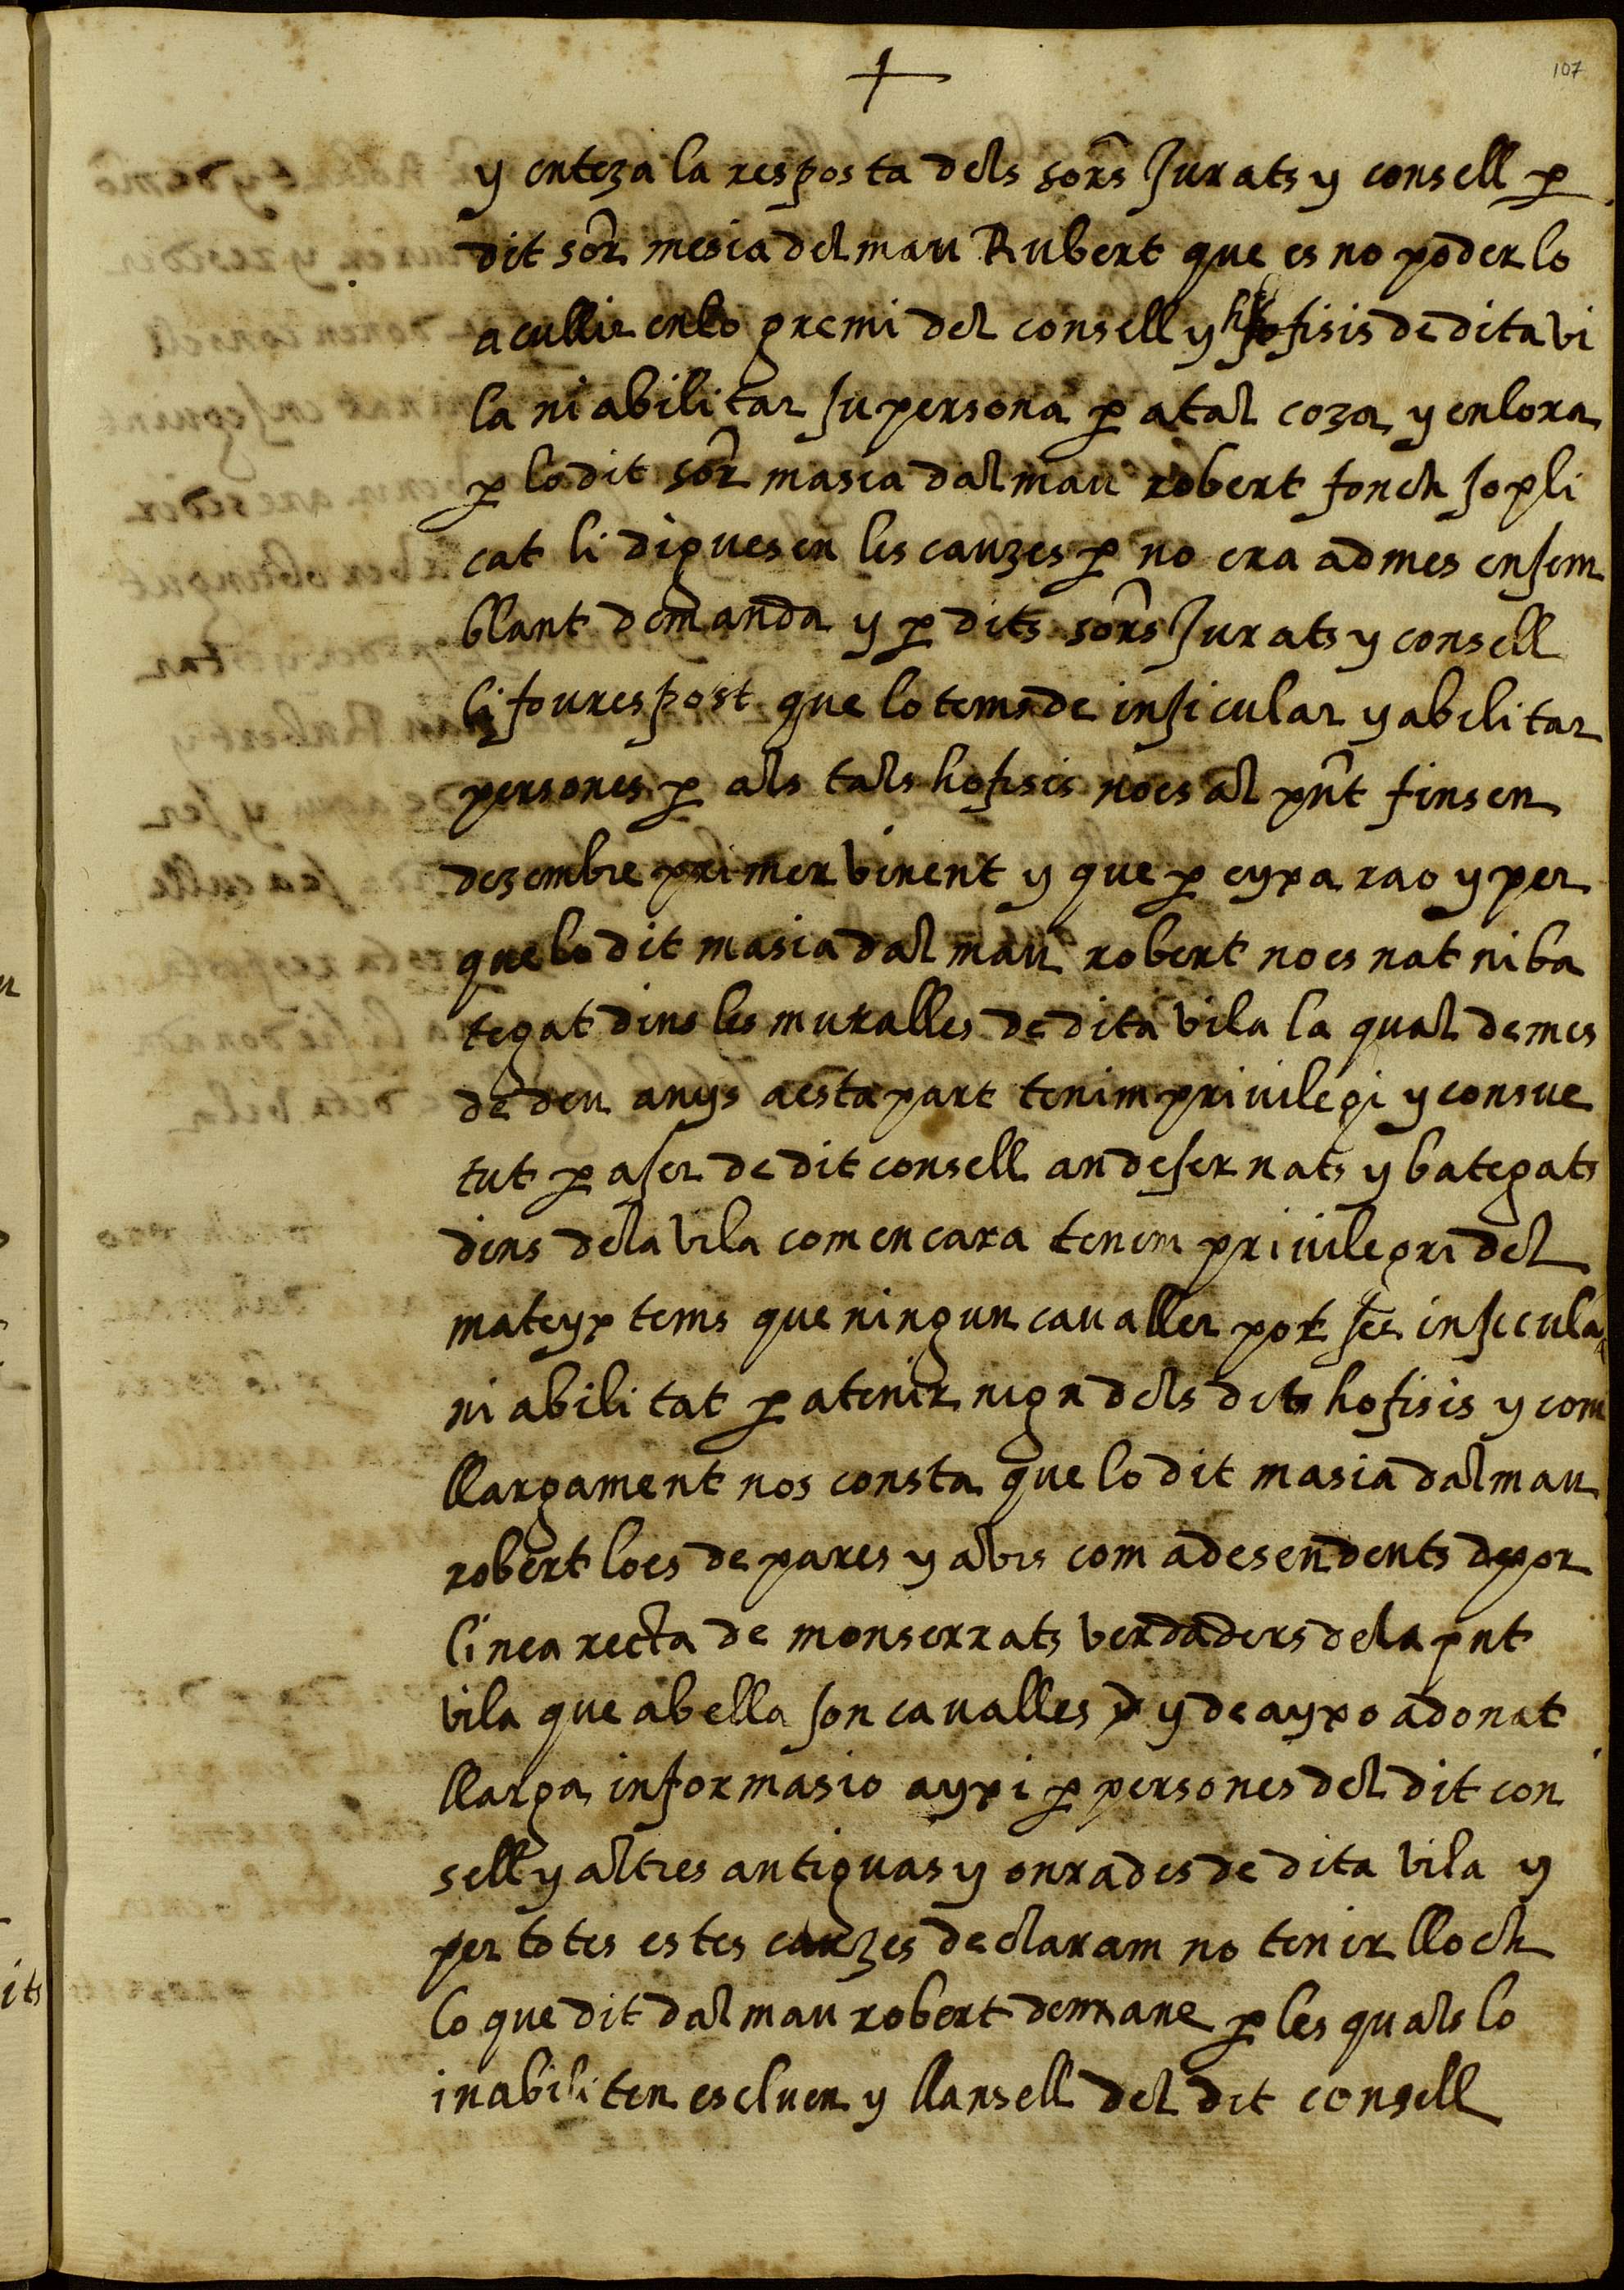 107
y enteza la resposta dels sors Jurats y consell p
dit sor mesia delmau Rubert que es no poderlo
acullir enlo gremi del consell y hofisis de dita vi
la ni abilitar su persona p atal coza y enlora
p lo dit sor masia dalmau robert fonch sopli
cat li diguesen les cauzes p no era admes ensem
blant demanda y p dits sors Jurats y consell
li fourespost que lo temsde insicular y abilitar
persones p als tals hofisis noes al pnt fins en
dezembre primer vinent y que p eyxa rao y per
que lo dit masia dalmau robert noes nat ni ba
tegat dins les muralles de dita vila la qual demes
de deu anys aesta part tenim privilegi y consue
tut p aser de dit consell an deser nats y bategats
dins dela vila com encara tenim privilegi del
mateyx tems que ningun cavaller pot ser insicula
ni abilitat p atenir nign dels dits hofisis y com
llargament nos consta que lo dit masia dalmau
robert loes de pares y abis com adesendents depor
linea recta de monserrats verdaders dela pnt
vila que abella son cavalles y de ayxo adonat
llarga informasio ayxi p persones del dit con
sell y altres antiguas y onrades de dita vila y
per totes estes cauzes declaram no tenir lloch
lo que dit dalmau robert demane p les quals lo
inabiliten escluen y llansell del dit consell
its